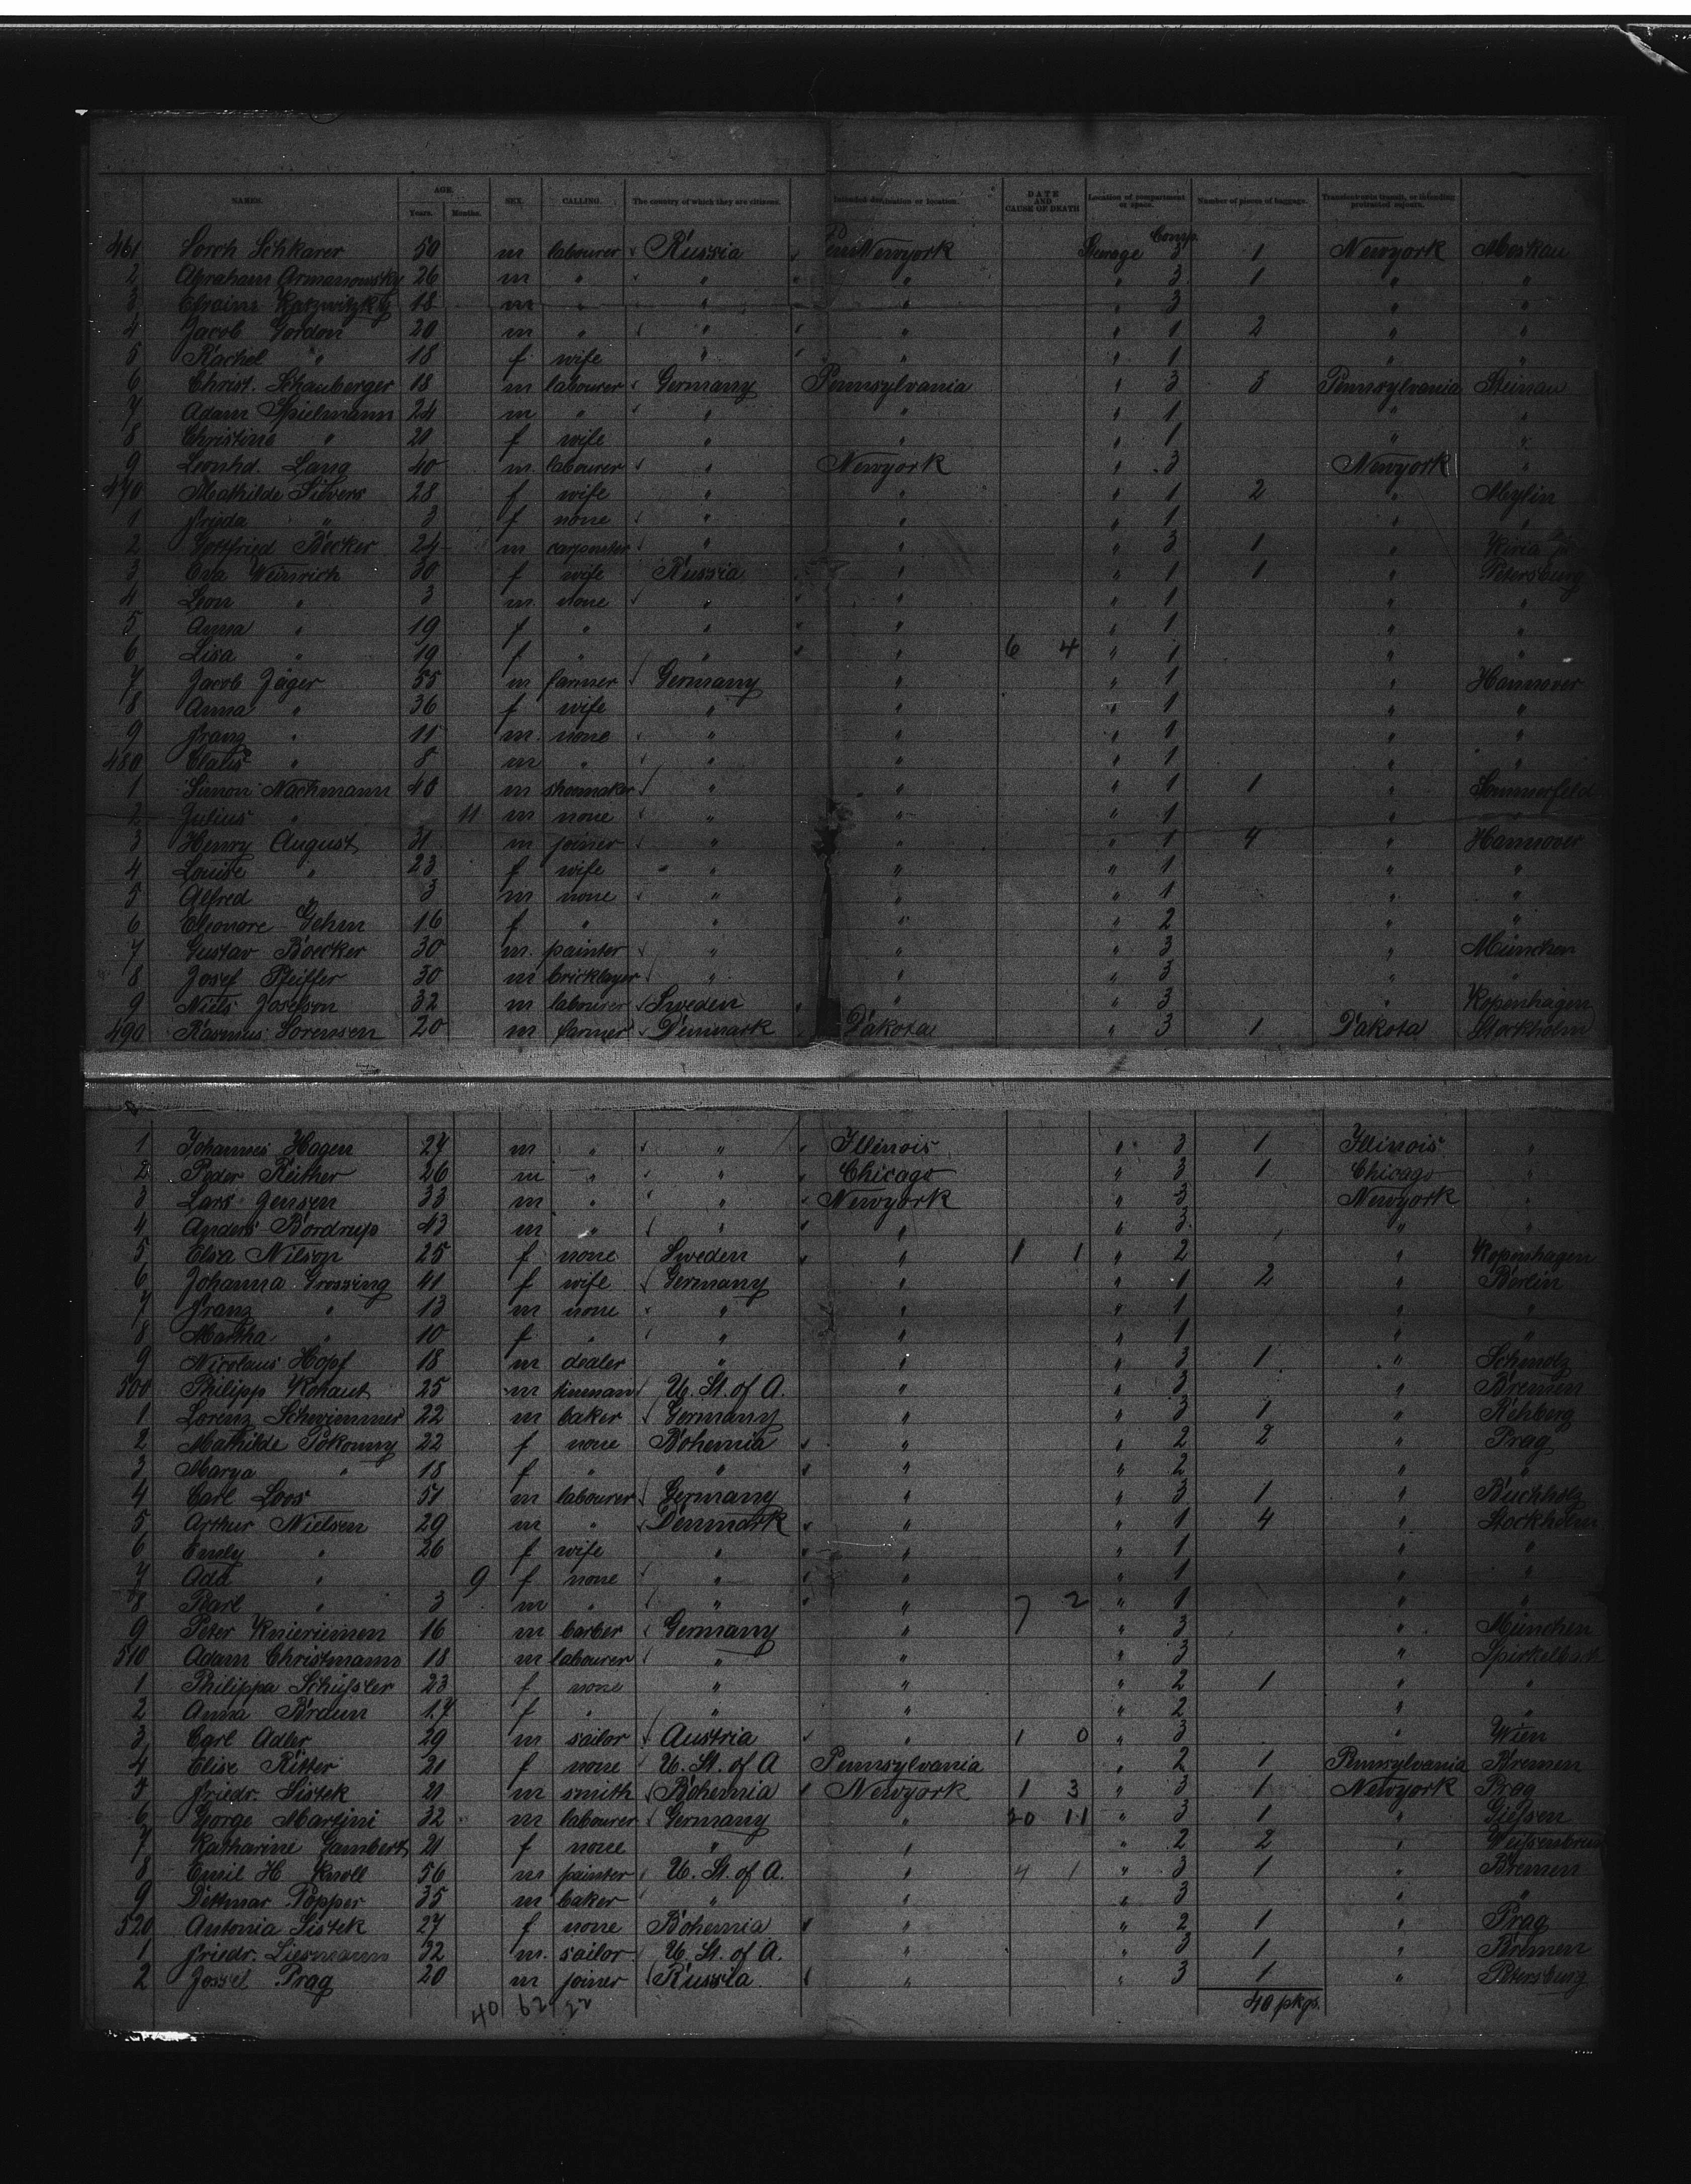 NAMES. AGE. Years. Months. SEX. CALLING. The country of which they are citizens. Intended destination or location. DATE AND CAUSE OF DEATH Location of compartment or space. Number of pieces of baggage. Transient or in transit, or intending protracted sojourn.
461 Sorch Schkarer 50 m labourer Russia Newyork Steerage Comp. 3 1 Newyork Moskau
2 Abraham Armanowsky 26 m " " " " 3 1 " "
3 Efraim 18 m " " " " 3 " "
4 Jacob Gordon 20 m " " " " 1 2 " "
5 Rachel " 18 f wife " " " 1 " "
6 Christ. Schauberger 18 m labourer Germany Pennsylvania " 3 5 Pennsylvania Steinau
7 Adam Spielmann 24 m " " " " 1 " "
8 Christine " 20 f wife " " " 1 " "
9 Leonhd. Lang 40 m labourer " Newyork " 3 Newyork "
470 Mathilde Sievers 28 f wife " " " 1 2 " Mylin
1 Frieda " 3 f none " " " 1 " "
2 Gottfried Becker 24 m carpenter " " " 3 1 "
3 Eva Weinrich 30 f wife Russia " " 1 1 " Petersburg
4 Leon " 3 m none " " " 1 " "
5 Anna " 19 f " " " " 1 " "
6 Lisa " 19 f " " " 6 4 " 1 " "
7 Jacob Jäger 55 m farmer Germany " " 1 " Hannover
8 Anna " 36 f wife " " " 1 " "
9 Franz " 11 m none " " " 1 " "
480 " 8 m " " " " 1 " "
1 Simon Nachmann 40 m shoemaker " " " 1 1 " Sommerfeld
2 Julius " 11 m none " " " 1 " "
3 Henry August 31 m joiner " " " 1 4 " Hannover
4 Louise " 23 f wife " " " 1 " "
5 Alfred " 3 m none " " " 1 " "
6 Eleonore Gehm 16 f " " " " 2 " "
7 Gustav Boecker 30 m painter " " " 3 " München
8 Josef Pfeiffer 30 m bricklayer " " " 3 " "
9 Niels Josefson 32 m labourer Sweden " " 3 " Kopenhagen
490 Rasmus Sorensen 20 m farmer Denmark Dakota " 3 1 Dakota Stockholm
1 Johannes Hagen 27 m " " Illinois " 3 1 Illinois "
2 Peder Reither 26 m " " Chicago " 3 1 Chicago "
3 Lars Jensen 33 m " " Newyork " 3 Newyork "
4 Anders Bordrup 43 m " " " " 3 " "
5 Elsa Nilson 25 f none Sweden " 1 1 " 2 " Kopenhagen
6 Johanna Grossing 41 f wife Germany " " 1 2 " Berlin
7 Franz " 13 m none " " " 1 " "
8 Martha " 10 f " " " " 1 " "
9 Nicolaus Hopf 18 m dealer " " " 3 1 " Schmolz
500 Philipp Kohaut 25 m U. St. of A. " " 3 " Bremen
1 Lorenz Schwimmer 22 m baker Germany " " 3 1 " Rehberg
2 Mathilde Pokonny 22 f none Bohemia " " 2 2 " Prag
3 Marya " 18 f " " " " 2 " "
4 Carl Loos 51 m labourer Germany " " 3 1 " Buchholz
5 Arthur Nielsen 29 m " Denmark " " 1 4 " Stockholm
6 Emily " 26 f wife " " " 1 " "
7 Ada " 9 f none " " " 1 " "
8 " 3 m " " " 7 2 " 1 " "
9 Peter Knieriemen 16 m barber Germany " " 3 " München
510 Adam Christmann 18 m labourer " " " 3 " Spirkelbach
1 Philippa Schüssler 23 f none " " " 2 1 " "
2 Anna Braun 17 f " " " " 2 " "
3 Carl Adler 29 m sailor Austria " 1 0 " 3 " Wien
4 Elise Ritter 21 f none U. St. of A Pennsylvania " 2 1 Pennsylvania Bremen
5 Friedr. Sistek 21 m smith Bohemia Newyork 1 3 " 3 1 Newyork Prag
6 George Martini 32 m labourer Germany " 20 11 " 3 1 " Giessen
7 Katharine Gambert 21 f none " " " 2 2 "
8 Emil H Knoll 56 m painter U. St. of A. " 4 1 " 3 1 " Bremen
9 Dettmar Popper 35 m baker " " " 3 " "
520 Antonia Sistek 27 f none Bohemia " " 2 1 " Prag
1 Friedr. Liesmann 32 m. sailor U. St. of A. " " 3 1 " Bremen
2 Jossel Prag 20 m joiner Russia " " 3 1 " Petersburg
40 62 40 pkgs.